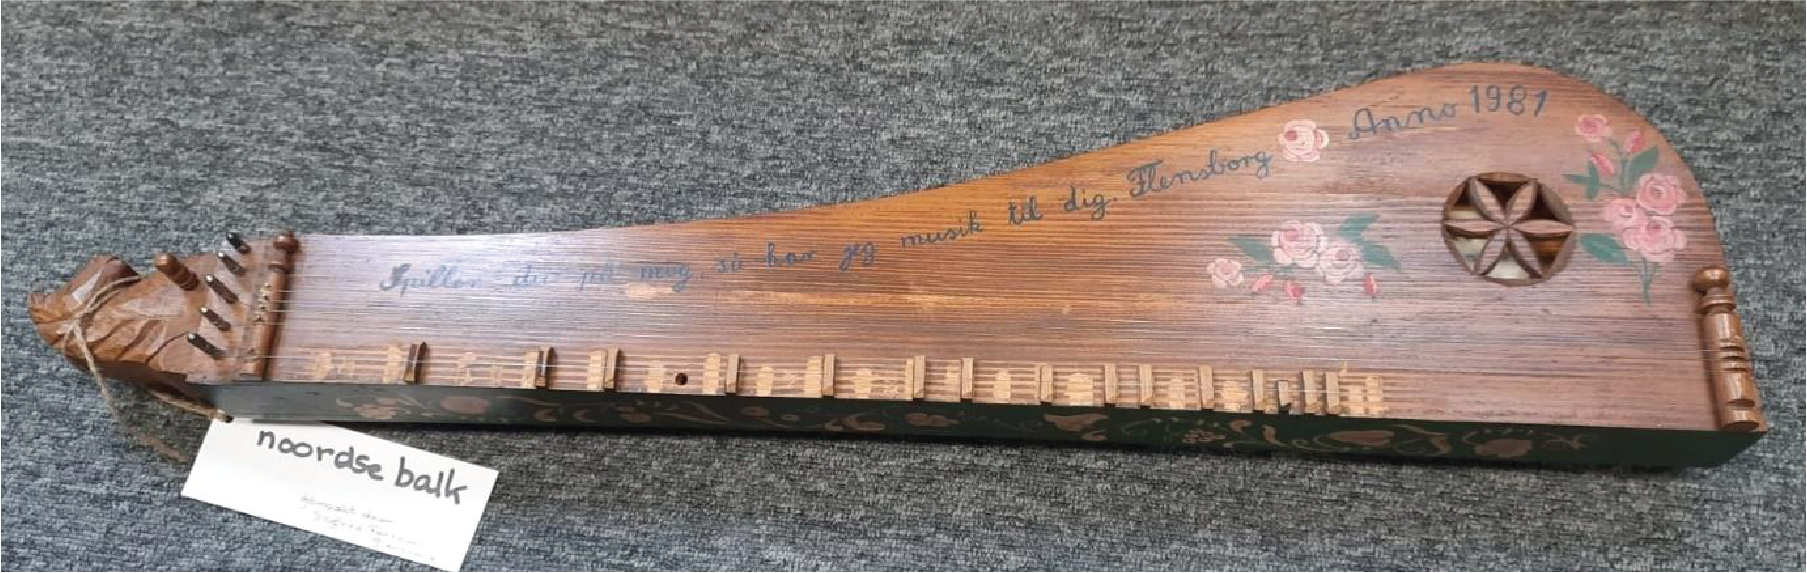 Spiller du på meg, så har jeg musik til dig. Flensborg Anno 1981
noordse balk